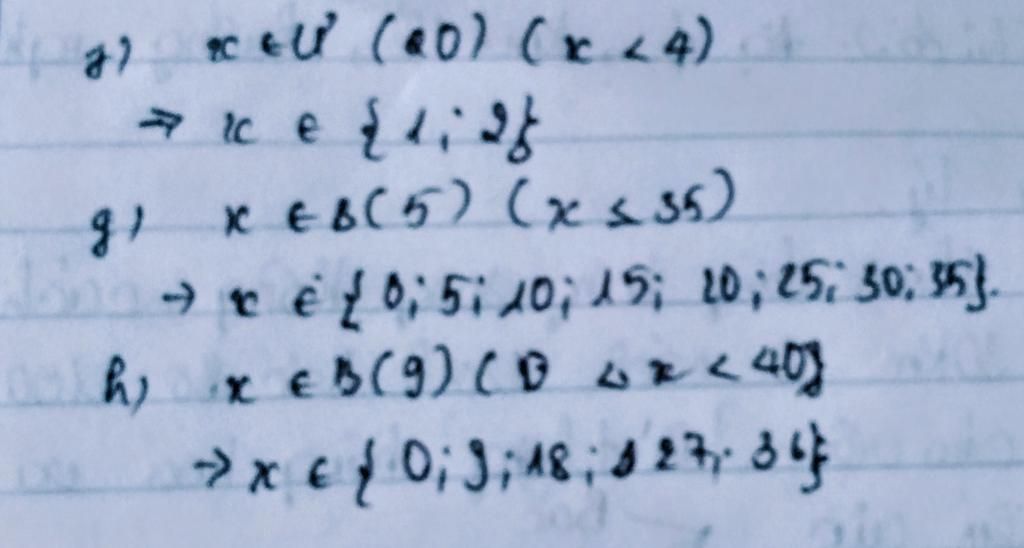 g) x ∈ Ư (20) (x < 4)
⇒ x ∈ {1; 2}
g) x ∈ B(5) (x ≤ 35)
→ x ∈ {0; 5; 10; 15; 20; 25; 30; 35}.
h) x ∈ B(9) (0 < x < 40}
→ x ∈ {0; 9; 18; 27; 36}